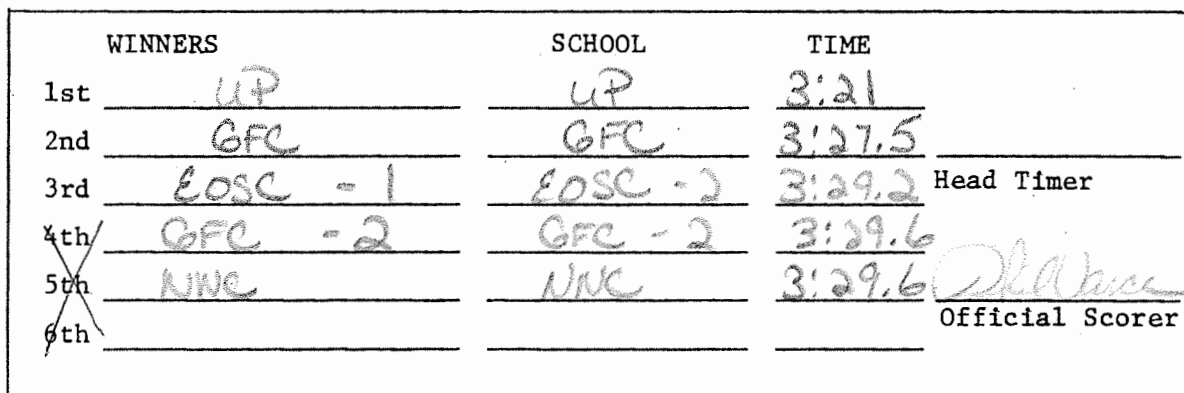 WINNERS SCHOOL TIME
1st UP UP 3:21
2nd GFC GFC 3:27.5
3rd EOSC - 1 EOSC - 2 3:29.2 Head Timer
4th GFC - 2 GFC - 2 3:29.6
5th NWC NNC 3:29.6
6th Official Scorer